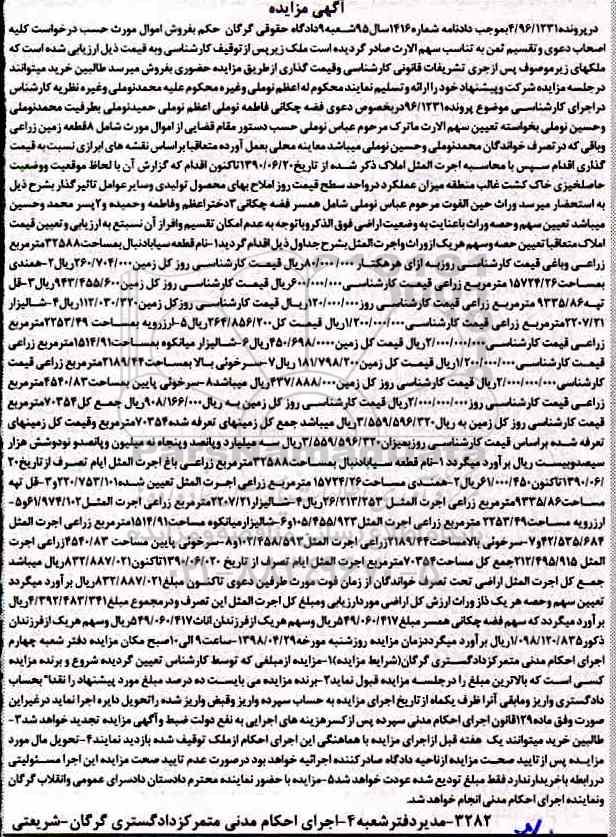 آگهی مزایده
در پرونده ۴/۹۶/۱۲۳۱ بموجب دادنامه شماره ۱۴۱۶ سال ۹۵ شعبه ۹ دادگاه حقوقی گرگان حکم بفروش اموال مورث حسب درخواست کلیه
اصحاب دعوی و تقسیم ثمن به تناسب سهم الارث صادر گردیده است ملک زیر پس از توقیف کارشناسی و به قیمت ذیل ارزیابی شده است که
ملکهای زیر موصوف پس از جری تشریفات قانونی کارشناسی وقیمت گذاری از طریق مزایده حضوری بفروش میرسد طالبین خرید میتوانند
در جلسه مزایده شرکت و پیشنهاد خود را ارائه و تسلیم نمایند محکوم له اعظم نوملی وغیره محکوم علیه محمد نوملی وغیره نظریه کارشناس
در اجرای کارشناسی موضوع پرونده ۹۶/۱۲۳۱ درخصوص دعوی فضه چکانی فاطمه نوملی اعظم نوملی حمید نوملی بطرفیت محمد نوملی
وحسین نوملی بخواسته تعیین سهم الارث ماترک مرحوم عباس نوملی حسب دستور مقام قضایی از اموال مورث شامل ۸ قطعه زمین زراعی
وباقی که در تصرف خواندگان محمد نوملی وحسین نوملی میباشد معاینه محلی بعمل آورده متعاقبا بر اساس نقشه های ابرازی نسبت به قیمت
گذاری اقدام سپس با محاسبه اجرت المثل املاک ذکر شده از تاریخ ۱۳۹۰/۰۶/۲۰ تاکنون اقدام که گزارش آن با لحاظ موقعیت ووضعیت
حاصلخیزی خاک کشت غالب منطقه میزان عملکرد در واحد سطح قیمت روز املاح بهای محصول تولیدی وسایر عوامل تاثیر گذار بشرح ذیل
به استحضار میرسد وراث حین الفوت مرحوم عباس نوملی شامل همسر فضه چکانی ۳ دختر اعظم وفاطمه وحمیده و ۲ پسر محمد وحسین
میباشد تعیین سهم وحصه وراث با عنایت به وضعیت اراضی فوق الذکر وباتوجه به عدم امکان تقسیم وافراز آن نسبت به ارزیابی وتعیین قیمت
املاک متعاقبا تعیین حصه وسهم هریک از وراث واجرت المثل بشرح جداول ذیل اقدام گردید ۱-نام قطعه سیابادنبال بمساحت ۳۲۵۸۸ مترمربع
زراعی وباغی قیمت کارشناسی روز به ازای هر هکتار ۸۰/۰۰۰/۰۰۰ ریال قیمت کارشناسی روز کل زمین ۲۶۰/۷۰۴/۰۰۰ ریال ۲-همندی
بمساحت ۱۵۷۲۴/۲۶ مترمربع زراعی قیمت کارشناسی ۶۰۰/۰۰۰/۰۰۰ ریال قیمت کارشناسی روز کل زمین ۹۴۳/۴۵۵/۶۰۰ ریال ۳-قل
تپه ۹۳۳۵/۸۶ مترمربع زراعی قیمت کارشناسی روز ۱۲۰/۰۰۰/۰۰۰ ریال قیمت کارشناسی روز کل زمین ۱۱۲/۰۳۰/۳۲۰ ریال ۴-شالیزار
۲۲۰۷/۲۱ مترمربع زراعی قیمت کارشناسی ۱/۲۰۰/۰۰۰/۰۰۰ ریال قیمت کل ۲۶۴/۸۵۶/۲۰۰ ریال ۵-ارزرویه بمساحت ۲۲۵۳/۴۹ مترمربع
زراعی قیمت کارشناسی ۲/۰۰۰/۰۰۰/۰۰۰ ریال قیمت کل زمین ۴۵۰/۶۹۸/۰۰۰ ریال ۶-شالیزار میانکوه بمساحت ۱۵۱۴/۹۱ مترمربع زراعی
قیمت کارشناسی ۱/۲۰۰/۰۰۰/۰۰۰ ریال قیمت کل زمین ۱۸۱/۷۹۸/۲۰۰ ریال ۷-سرخوئی بالا بمساحت ۲۱۸۹/۴۴ مترمربع زراعی قیمت
کارشناسی ۲/۰۰۰/۰۰۰/۰۰۰ ریال قیمت کارشناسی روز کل زمین ۴۳۷/۸۸۸/۰۰۰ ریال میباشد ۸-سرخوئی پایین بمساحت ۴۵۴۰/۸۳ مترمربع
زراعی قیمت کارشناسی روز ۲/۰۰۰/۰۰۰/۰۰۰ ریال قیمت کارشناسی روز کل زمین به ریال ۹۰۸/۱۶۶/۰۰۰ ریال جمع کل ۷۰۳۵۴ مترمربع
قیمت کارشناسی روز کل زمین به ریال ۳/۵۵۹/۵۹۶/۳۲۰ ریال میباشد جمع کل زمینهای تعرفه شده ۷۰۳۵۴ مترمربع وقیمت کل زمینهای
تعرفه شده بر اساس قیمت کارشناسی روز بمیزان ۳/۵۵۹/۵۹۶/۳۲۰ ریال سه میلیارد وپانصد وپنجاه نه میلیون وپانصدو نودوشش هزار
سیصدوبیست ریال برآورد میگردد ۱-نام قطعه سیابادنبال بمساحت ۳۲۵۸۸ مترمربع زراعی باغ اجرت المثل ایام تصرف از تاریخ ۲۰
/۱۳۹۰/۰۶ تاکنون ۶۱/۰۰۰/۴۵۰ ریال ۲-همندی مساحت ۱۵۷۲۴/۲۶ مترمربع زراعی اجرت المثل تعیین شده ۲۲۰/۷۵۳/۱۰۱ و ۳-قل تپه
مساحت ۹۳۳۵/۸۶ مترمربع زراعی اجرت المثل ۲۶/۲۱۳/۲۵۳ ریال ۴-شالیزار ۲۲۰۷/۲۱ مترمربع زراعی اجرت المثل ۶۱/۹۷۴/۱۰۲ و ۵-
ارزرویه مساحت ۲۲۵۳/۴۹ مترمربع زراعی اجرت المثل ۱۰۵/۴۵۵/۹۲۳ و ۶-شالیزار میانکوه مساحت ۱۵۱۴/۹۱ مترمربع زراعی اجرت المثل
۴۲/۵۳۵/۶۸۴ و ۷-سرخوئی بالا مساحت ۲۱۸۹/۴۴ زراعی اجرت المثل ۱۰۲/۴۵۸/۵۹۳ و ۸-سرخوئی پایین مساحت ۴۵۴۰/۸۳ زراعی اجرت
المثل ۲۱۲/۴۹۵/۹۱۵ جمع کل مساحت ۷۰۳۵۴ مترمربع اجرت المثل ایام تصرف از تاریخ ۱۳۹۰/۰۶/۲۰ تاکنون ۸۳۲/۸۸۷/۰۲۱ ریال میباشد
جمع کل اجرت المثل اراضی تحت تصرف خواندگان از زمان فوت مورث طرفین دعوی تاکنون مبلغ ۸۳۲/۸۸۷/۰۲۱ ریال بر آورد میگردد
تعیین سهم وحصه هر یک از وراث ارزش کل اراضی مورد ارزیابی ومبلغ کل اجرت المثل این تصرف ودر مجموع مبلغ ۴/۳۹۲/۴۸۳/۳۴۱ ریال
بر آورد میگردد که سهم فضه چکانی همسر مبلغ ۵۴۹/۰۶۰/۴۱۷ ریال وسهم هریک از فرزندان اناث ۵۴۹/۰۶۰/۴۱۷ ریال وسهم هریک از فرزندان
ذکور ۱/۰۹۸/۱۲۰/۸۳۵ ریال بر آورد میگردد زمان مزایده روز شنبه مورخه ۱۳۹۸/۰۴/۲۹-ساعت ۹ الی ۱۰ صبح مکان مزایده دفتر شعبه چهارم
اجرای احکام مدنی متمرکز دادگستری گرگان (شرایط مزایده) ۱-مزایده از مبلغی که توسط کارشناس تعیین گردیده شروع و برنده مزایده
کسی است که بالاترین مبلغ را در جلسه مزایده قبول نماید ۲-برنده مزایده می بایست ده درصد مبلغ مورد پیشنهاد را نقدا" بحساب
دادگستری واریز ومابقی آنرا ظرف یکماه از تاریخ اجرای مزایده به حساب سپرده واریز وقبض واریز شده را تحویل دایره اجرا نماید در غیر این
صورت وفق ماده ۱۲۹ قانون اجرای احکام مدنی سپرده پس از کسر هزینه های اجرایی به نفع دولت ضبط و آگهی مزایده تجدید خواهد شد ۳-
طالبین خرید میتوانند یک هفته قبل از اجرای مزایده با هماهنگی این اجرای احکام از ملک توقیف شده بازدید نمایند ۴-تحویل مال مورد
مزایده پس از تایید صحت مزایده از ناحیه دادگاه صادر کننده اجرائیه خواهد بود در صورت عدم تایید صحت مزایده این اجرا مسئولیتی
در رابطه با خریدار ندارد فقط مبلغ تودیع شده عودت خواهد شد ۵-مزایده با حضور نماینده محترم دادستان دادسرای عمومی وانقلاب گرگان
ونماینده اجرای احکام مدنی انجام خواهد شد.
۳۲۸۲-مدیر دفتر شعبه ۴-اجرای احکام مدنی متمرکز دادگستری گرگان-شریعتی